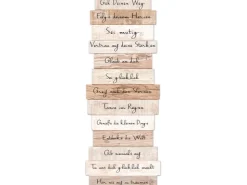 Geh Deinen Weg
Folg' deinem Herzen
Sei mutig
Vertraue auf deine Stärken
Glaub an dich
Sei glücklich
Greif nach den Sternen
Tanze im Regen
Genieße die kleinen Dinge
Entdecke die Welt
Gib niemals auf
Tu was dich glücklich macht